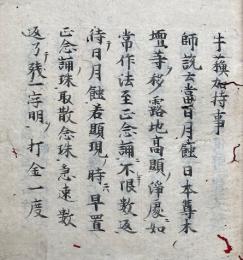 牛蘓加持事
師説云當百月蝕日本尊木
壇等移露地高顕淨處如
常作法至正念誦不限数返
待日月蝕若顕現時早置
正念誦珠取散念珠急速数
返了残一字明打金一度